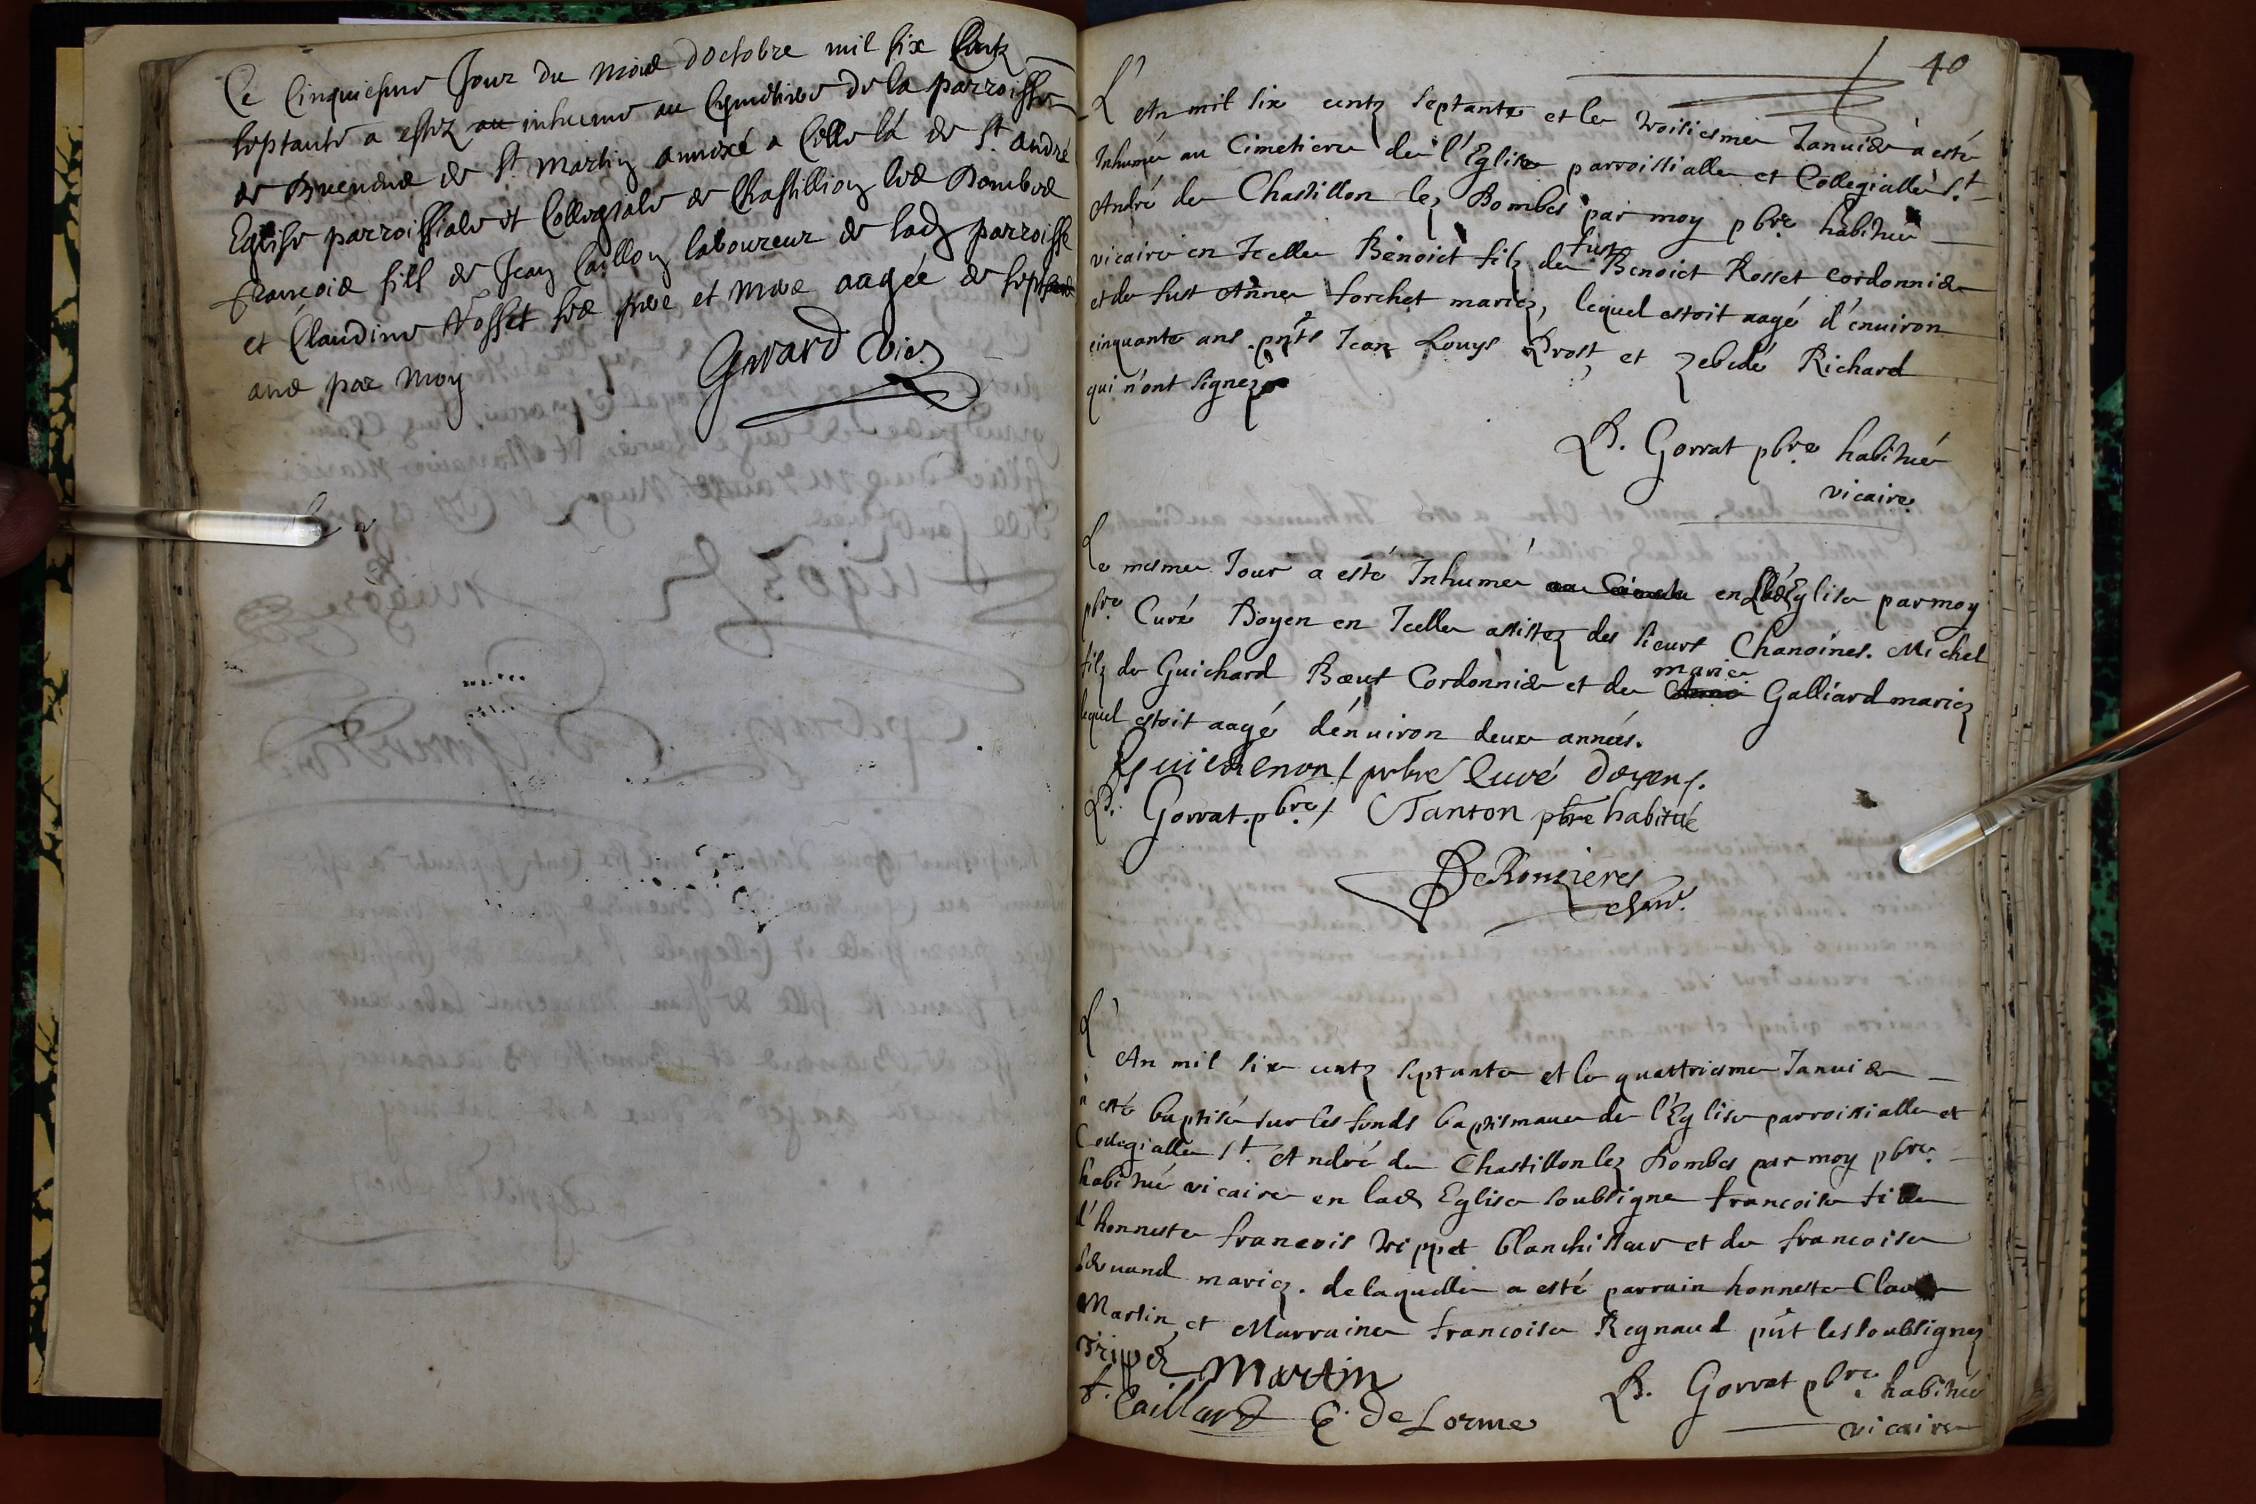 Ce Cinquiesme Jour du mois d'octobre mil six Centz
septante a estez au inhumé au Cymetiere de la parroisse
de Buenans de St. Martin annexé a Celle là de St. André
Eglise parroissiale et Collegiale de Chastillion les Dombes
françois fils de Jean Caillon laboureur de lad parroisse
et Claudine Rosset ses pere et mere aagée de sept
ans par moy
Gorrard vic.
40
L'An mil six centz septante et le troisiesme Januier à esté
Inhumé au Cimetiere de l'Eglise parroissialle et Collegialle St.
André de Chastillon lez Dombes par moy pbre habitué
vicaire en Icelle Benoict filz de fust Benoict Rosset cordonnier
et de fust Anne forchet mariez, lequel estoit aagé d'enuiron
cinquante ans. pnts Jean Louys Prost, et Zebedé Richard
qui n'ont signez
B. Gorrat pbre habitué
vicaire
Le mesme Jour a esté Inhumé au Cimetiere en lad Eglise par moy
pbre Curé Doyen en Icelle assistez des sieurs Chanoines. Michel
filz de Guichard Bœuf Cordonnier et de Anne marie Galliard mariez
lequel estoit aagé d'énuiron deux années.
Guichenon pbre Curé doyen.
B. Gorrat. pbre Tanton pbre habitué
De Rouzieres
chan.
L'An mil six centz septante et le quattriesme Januier
à esté baptisée sur les fonds baptismaux de l'Eglise parroissialle et
Collegialle St. André de Chastillon lez Dombes par moy pbre
habitué vicaire en lad Eglise soubsigne francoise fille
d'honneste francois Trippet blanchisseur et de francoise
mariez. de laquelle a esté parrain honneste Claude
Martin, et Marraine francoise Regnaud pnt les soubsignez
Trippet Martin
f. Caillard C. De Lorme
B. Gorrat pbre habitué
vicaire